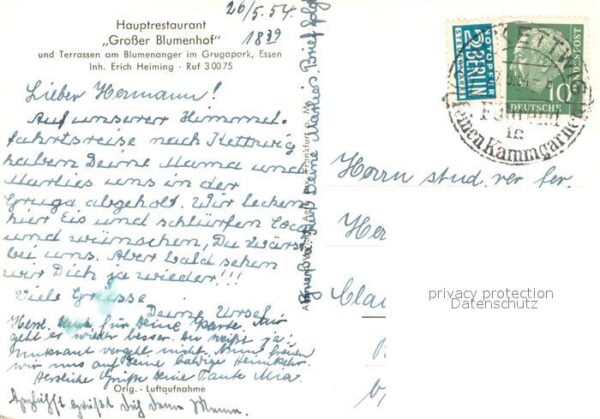 26/5.54.
1839
Hauptrestaurant
„Großer Blumenhof"
und Terrassen am Blumenanger im Grugapark, Essen
Inh. Erich Heiming · Ruf 3 00 75
Lieber Hermann!
Auf unserer Himmel-
fahrtsreise nach Kettwig
haben Deine Mama und
Marlies uns in der
Gruga abgeholt. Wir lecken
hier Eis und schlürfen Coca
und wünschen, Du wärst
bei uns. Aber bald sehen
wir Dich ja wieder!!!
Viele Grüsse
Deine Ursel
Herzl. Dank für Deine Karte. Mir
geht es wieder besser. Du weißt ja:
Unkraut vergeht nicht. Nun freuen
wir uns auf Deine baldige Heimkehr.
Herzliche Grüße Deine Tante Mia
Orig. - Luftaufnahme
Gruß Deine Marlies. Brief folgt
NOTOPFER
2 BERLIN
STEUERMARKE
KETTWIG
DEUTSCHE BUNDESPOST
10
in
feinen Kammgarnen
Herrn stud. rer
privacy protection
Datenschutz